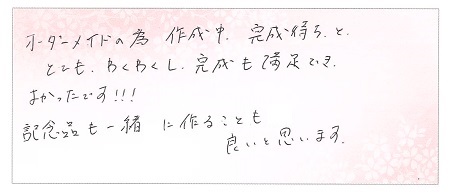 オーダーメイドの為 作成中、完成待ち、と
とても、わくわくし、完成も満足でき、
よかったです!!!
記念品も一緒に作ることも
良いと思います。